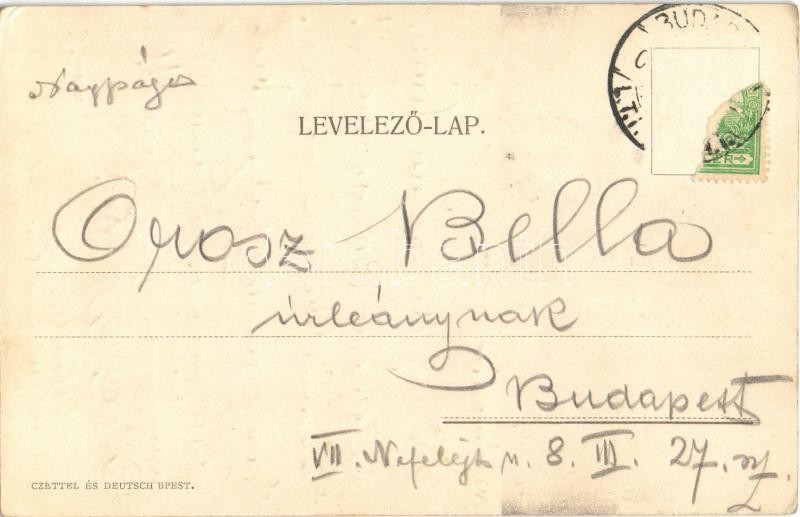 LEVELEZŐ-LAP.
Orosz Bella
úrleánynak
Budapest
VII. Nefelejts u. 8. III. 27. sz.
CZETTEL ÉS DEUTSCH BPEST.